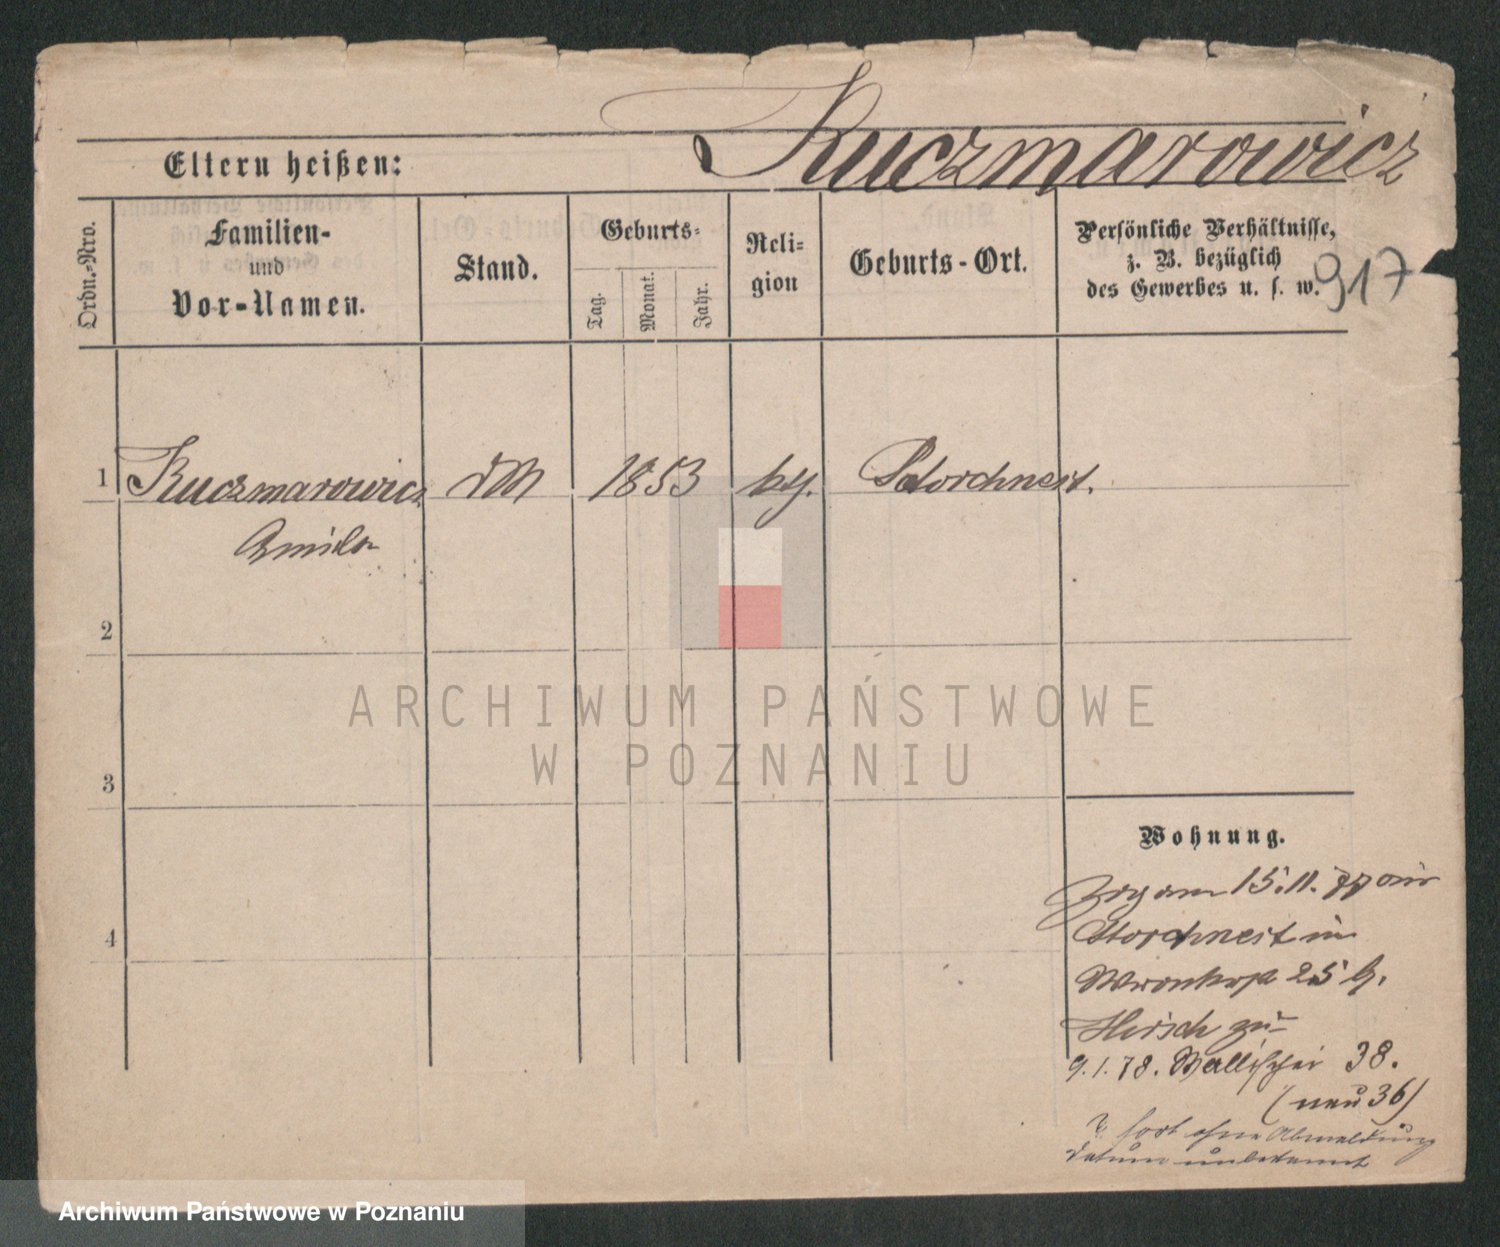 Kuczmarowicz
Eltern heißen:
Ordn.-Nro.
Familien-
und
Vor-Namen.
Stand.
Geburts-
Tag.
Monat.
Jahr.
Reli-
gion
Geburts-Ort.
Persönliche Verhältnisse,
z. B. bezüglich
des Gewerbes u. s. w.
917
1 Kuczmarowicz DM 1853 Storchnest.
2
3
4
ARCHIWUM PAŃSTWOWE
W POZNANIU
Wohnung.
Zog am 15.11.77 aus
Storchnest in
25 b.
Hirsch zu
9.1.78. Wallischei 38.
(neu 36)
fort ohne Abmeldung
Datum unbekannt
Archiwum Państwowe w Poznaniu